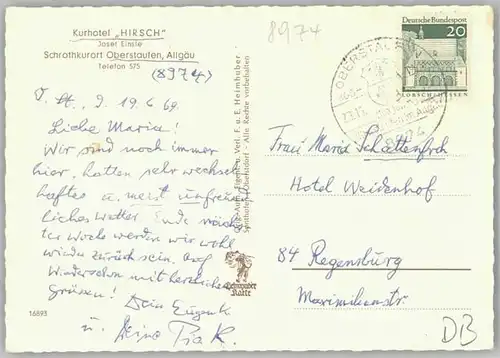 Kurhotel „HIRSCH"
Josef Einsle
Schrothkurort Oberstaufen, Allgäu
Telefon 575
(8974)
8974
O. St., d. 19.6.69.
Liebe Maria!
Wir sind noch immer
hier, hatten sehr wechsel-
haftes u. meist unfreund-
liches Wetter. Ende näch-
ster Woche werden wir wohl
wieder zurück sein. Auf
Wiedersehn mit herzlichen
Grüssen! Dein Eugen
u. Deine
16893
Verl. F. u. E. Heimhuber
Sonthofen u. Oberstdorf - Alle Rechte vorbehalten
Heimhuber
Karte
Deutsche Bundespost
20
LORSCH/HESSEN
OBERSTAUFEN
Frau Maria Schattenfroh
Hotel Weidenhof
84 Regensburg
Maximilianstr
DB